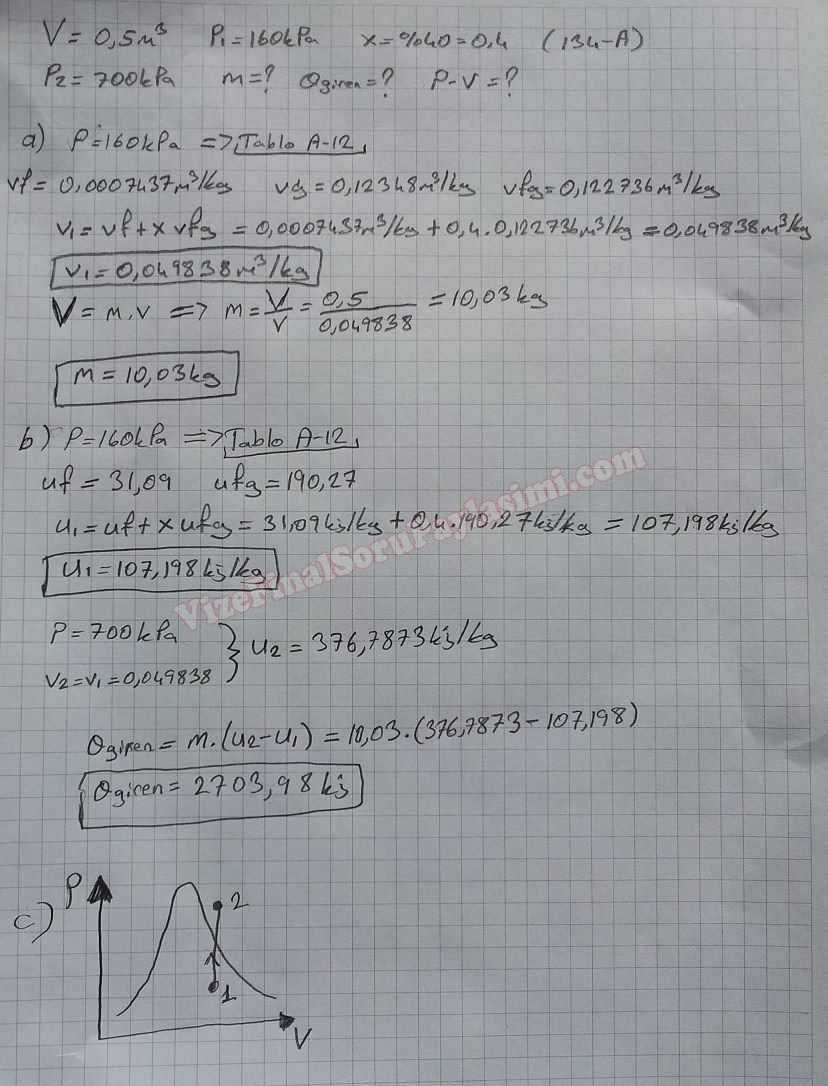 V = 0,5m³ P₁=160kPa x=%40=0,4 (134-A)
P₂=700kPa m=? Qgiren=? P-V=?
a) P=160kPa => Tablo A-12,
vf= 0,0007437m³/kg vg=0,12348m³/kg vfg=0,122736m³/kg
v₁=vf+x vfg = 0,0007437m³/kg+0,4.0,122736m³/kg=0,049838m³/kg
v₁=0,049838m³/kg
V=m.v => m=V/v=0,5/0,049838=10,03kg
m=10,03kg
b) P=160kPa => Tablo A-12,
uf=31,09 ufg=190,27
u₁=uf+x ufg=31,09kj/kg+0,4.190,27kj/kg=107,198kj/kg
u₁=107,198kj/kg
P=700kPa
v₂=v₁=0,049838 } u₂=376,7873kj/kg
Qgiren=m.(u₂-u₁)=10,03.(376,7873-107,198)
Qgiren=2703,98kj
c) P
2
1
V
VizeFinalSoruPaylasimi.com